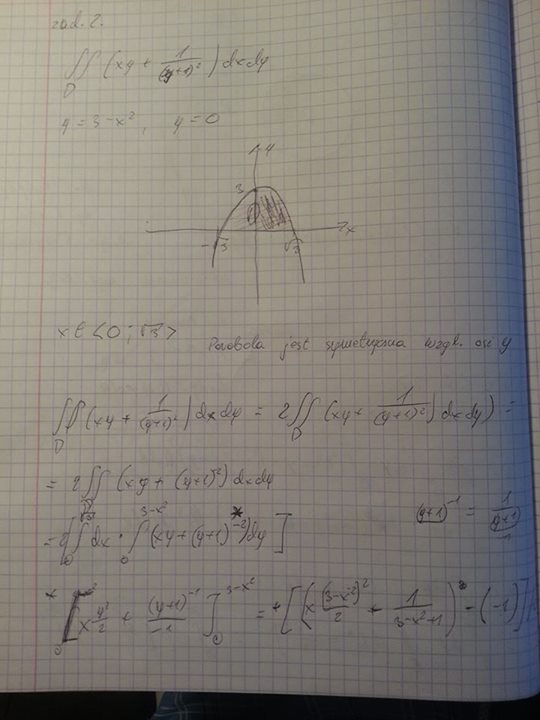 zad. 2.
∬_D (xy + 1/(y+1)²) dx dy
y = 3-x², y = 0
y
3
D
-√3 √3 x
x ∈ <0; √3> Parabola jest symetryczna wzgl. osi y
∬_D (xy + 1/(y+1)²) dx dy = 2∬_D (xy + 1/(y+1)²) dx dy) =
= 2∬ (xy + (y+1)^-2) dx dy
= 2[∫_0^√3 dx · ∫_0^{3-x²} (xy + (y+1)^-2) dy] (y+1)^-1 = 1/(y+1)
* [x y²/2 + (y+1)^-1/-1]_0^{3-x²} = [(x (3-x²)²/2 - 1/(3-x²+1)) - (-1)]